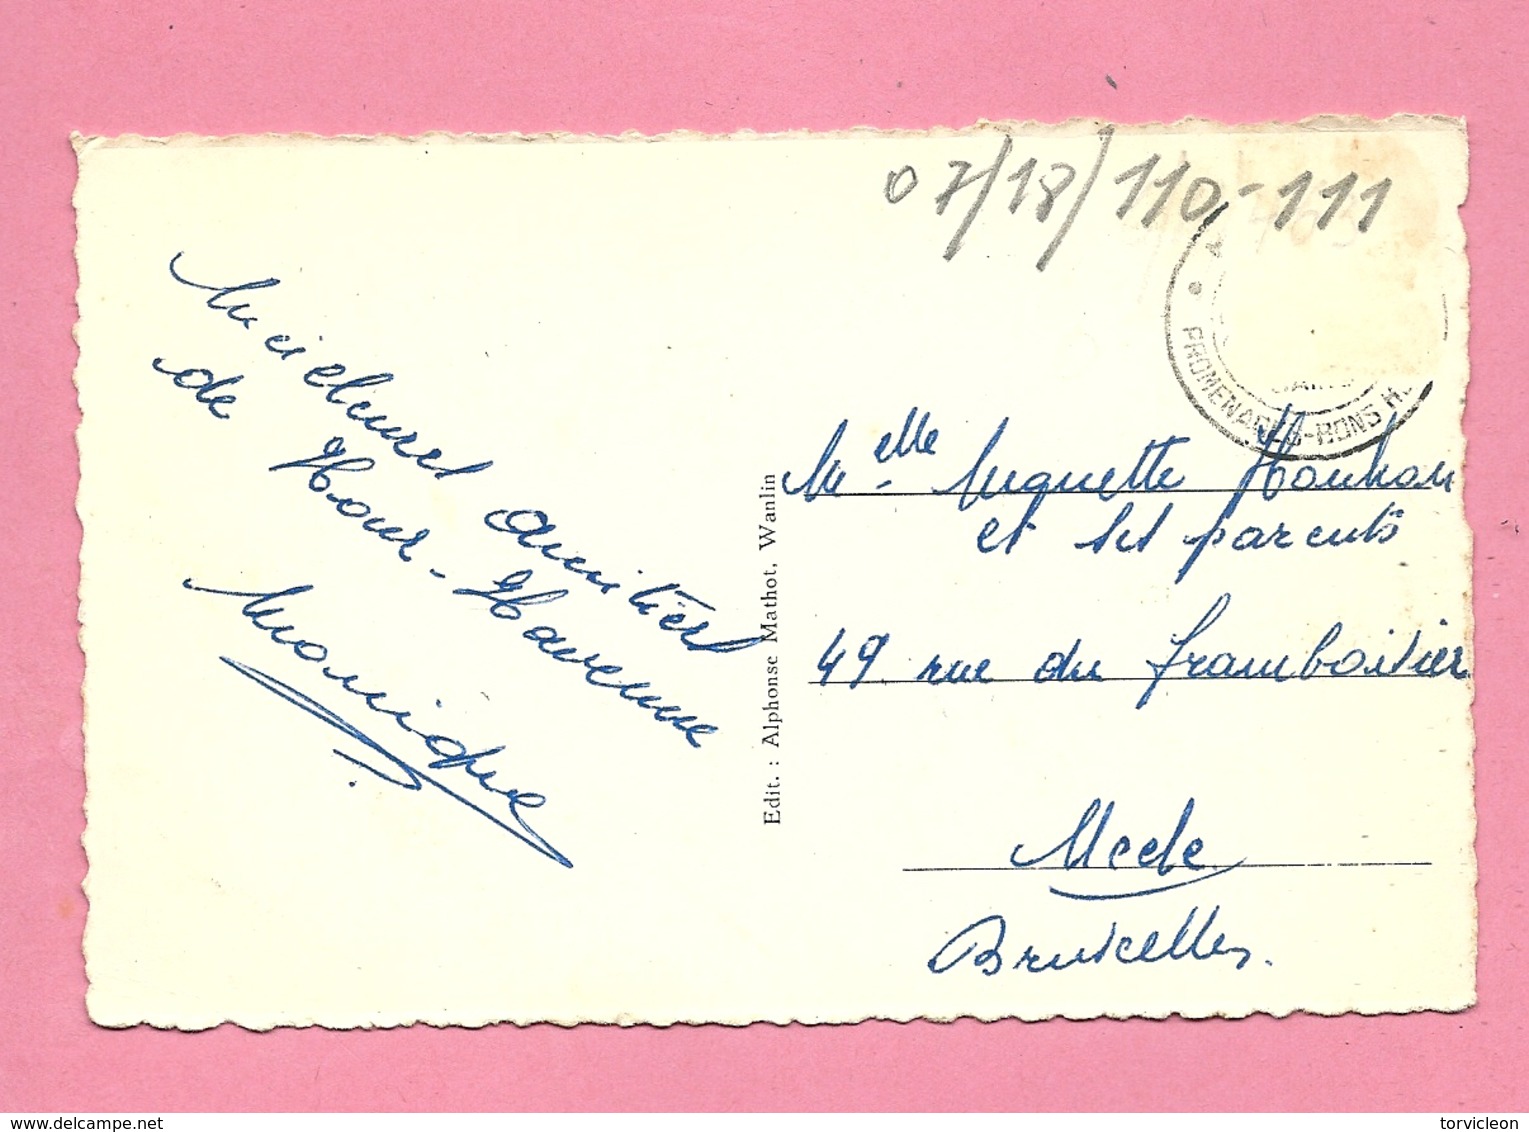 07/18/110-111
PROMENADES-BONS H
Meilleures amitiés
de Hour-Havenne
Monique
Edit. : Alphonse Mathot, Wanlin
Melle Huguette
et ses parents
49 rue du framboisier
Uccle
Bruxelles.
delcampe.net
torvicleon